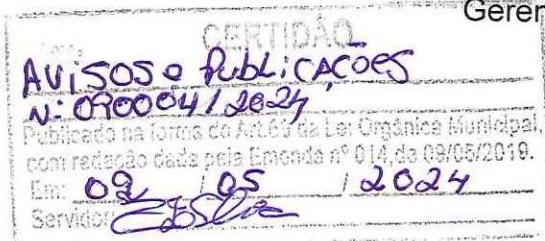 Geren
CERTIDÃO
AVISOS e PubLiCAÇOES
N: 090004/2024
Publicado na forma do Art. 69 da Lei Orgânica Municipal,
com redação dada pela Emenda nº 014, de 09/05/2019.
Em: 09 / 05 / 2024
Servidor